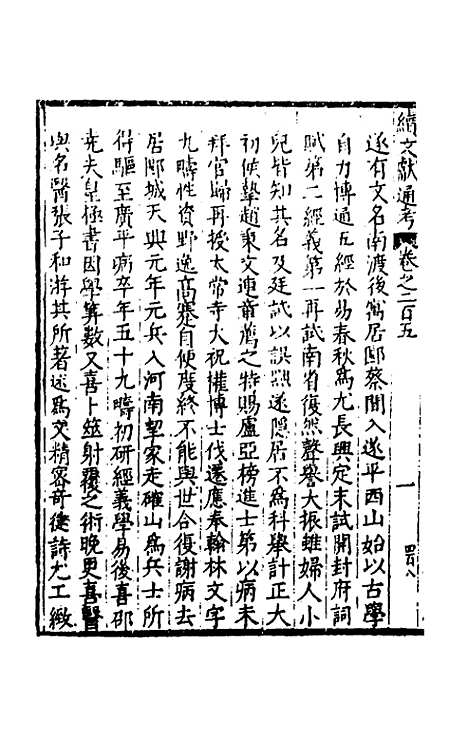 續文獻通考 卷之二百五 一
遂有文名南渡後寓居郾蔡間入遂平西山始以古學
自力博通五經於易春秋為尤長興定末試開封府詞
賦第二經義第一再試南省復然聲譽大振雖婦人小
兒皆知其名及廷試以誤黜遂隱居不為科舉計正大
初侯摯趙秉文連章薦之特賜盧亞榜進士第以病未
拜官歸再授太常寺大祝權博士俄遷應奉翰林文字
九疇性資野逸高蹇自便度終不能與世合復謝病去
居郾城天興元年元兵入河南挈家走確山為兵士所
得驅至廣平病卒年五十九疇初研經義學易後喜邵
尭夫皇極書因學算數又喜卜筮射覆之術晚更喜醫
與名醫張子和游其所著述為文精密奇徤詩尤工緻